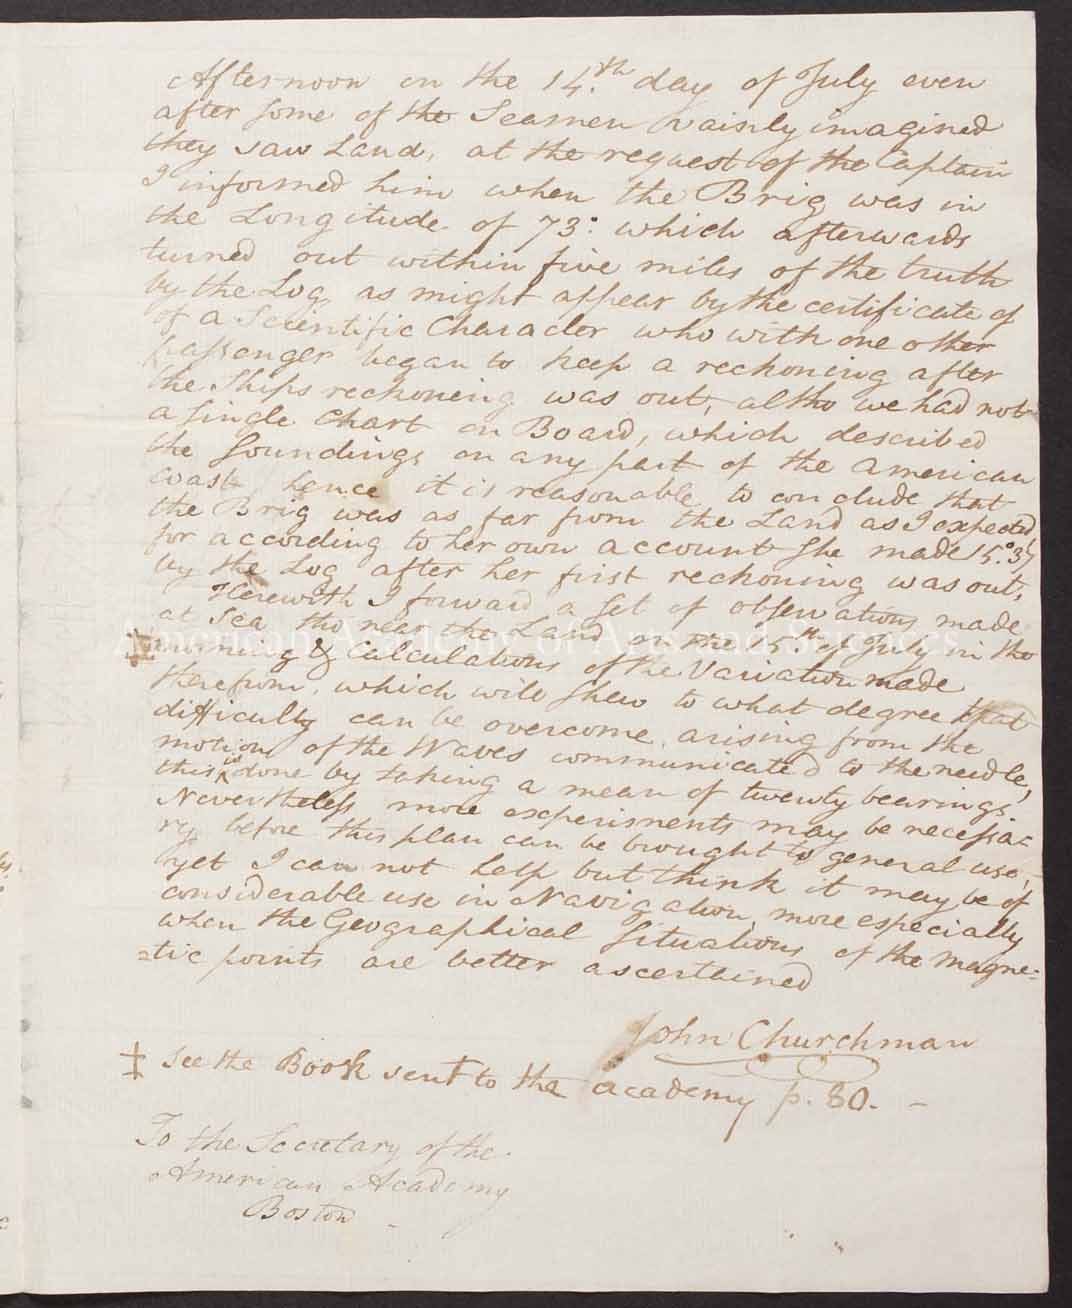 Afternoon on the 14.th day of July even
after some of the Seamen vainly imagined
they saw Land, at the request of the Captain
I informed him when the Brig was in
the Longitude of 73.° which afterwards
turned out within five miles of the truth
by the Log, as might appear by the certificate of
of a Scientific Character who with one other
passenger began to keep a reckoning after
the Ships reckoning was out, altho we had not
a single Chart on Board, which described
the soundings on any part of the American
Coast hence it is reasonable to conclude that
the Brig was as far from the Land as I expected
for according to her own account she made 15.°
by the Log after her first reckoning was out,
Herewith I forward a set of observations made
at Sea tho near the Land on the 15th of July in the
‡ morning & Calculations of the Variation made
therefrom, which will shew to what degree that
difficulty can be overcome, arising from the
motion of the Waves communicated to the needle,
this is done by taking a mean of twenty bearings
Nevertheless more experiments may be necessa=
ry before this plan can be brought to general use,
yet I can not help but think it may be of
considerable use in Navigation, more especially
when the Geographical Situations of the magne=
=tic points are better ascertained
John Churchman
‡ See the Book sent to the academy p. 80. –
To the Secretary of the
American Academy
Boston
American Academy of Arts and Sciences